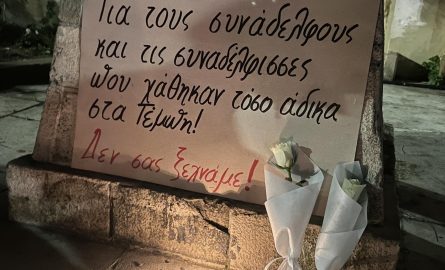 Για τους συνάδελφους
και τις συναδέλφισσες
που χάθηκαν τόσο άδικα
στα Τέμπη!
Δεν σας ξεχνάμε!